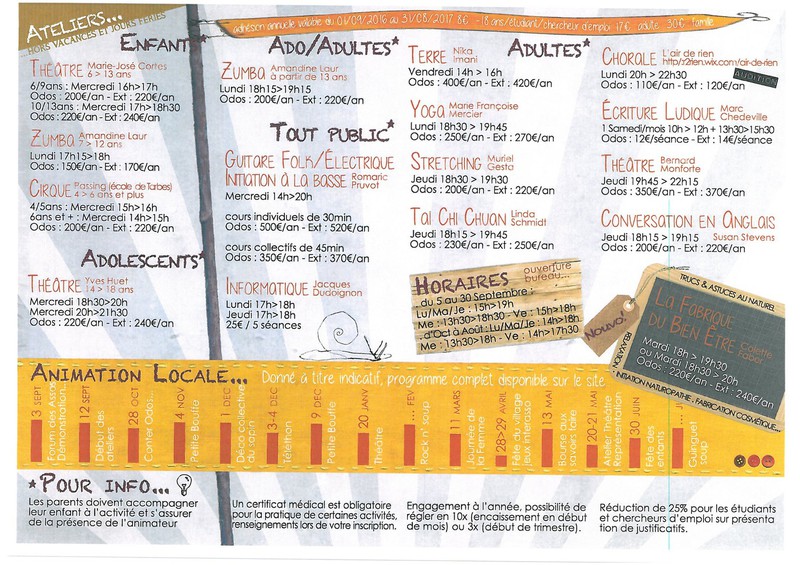 Ateliers...
...HORS VACANCES ET JOURS FÉRIÉS
adhésion annuelle valable du 01/09/2016 au 31/08/2017 8€ -18 ans/étudiant/chercheur d'emploi 17€ adulte 30€ famille
Enfants*
Théâtre Marie-José Cortes
6 > 13 ans
6/9ans : Mercredi 16h>17h
Odos : 200€/an - Ext : 220€/an
10/13ans : Mercredi 17h>18h30
Odos : 220€/an - Ext : 240€/an
Zumba Amandine Laur
7 > 12 ans
Lundi 17h15>18h
Odos : 150€/an - Ext : 170€/an
Cirque Passing (école de Tarbes)
4 > 6 ans et plus
4/5ans : Mercredi 15h>16h
6ans et + : Mercredi 14h>15h
Odos : 200€/an - Ext : 220€/an
Adolescents*
Théâtre Yves Huet
14 > 18 ans
Mercredi 18h30>20h
Mercredi 20h>21h30
Odos : 220€/an - Ext : 240€/an
Ado/Adultes*
Zumba Amandine Laur
à partir de 13 ans
Lundi 18h15>19h15
Odos : 200€/an - Ext : 220€/an
Tout public*
Guitare Folk/Électrique
Initiation à la basse Romaric Pruvot
Mercredi 14h>20h
cours individuels de 30min
Odos : 500€/an - Ext : 520€/an
cours collectifs de 45min
Odos : 350€/an - Ext : 370€/an
Informatique Jacques Dudoignon
Lundi 17h>18h
Jeudi 17h>18h
25€ / 5 séances
Adultes*
Terre Nika Imani
Vendredi 14h > 16h
Odos : 400€/an - Ext : 420€/an
Yoga Marie Françoise Mercier
Lundi 18h30 > 19h45
Odos : 250€/an - Ext : 270€/an
Stretching Muriel Gesta
Jeudi 18h30 > 19h30
Odos : 200€/an - Ext : 220€/an
Tai Chi Chuan Linda Schmidt
Jeudi 18h15 > 19h45
Odos : 230€/an - Ext : 250€/an
Chorale L'air de rien
http://z2rien.wix.com/air-de-rien
Lundi 20h > 22h30
AUDITION
Odos : 110€/an - Ext : 120€/an
Écriture Ludique Marc Chedeville
1 Samedi/mois 10h > 12h + 13h30>15h30
Odos : 12€/séance - Ext : 14€/séance
Théâtre Bernard Monforte
Jeudi 19h45 > 22h15
Odos : 350€/an - Ext : 370€/an
Conversation en Anglais
Jeudi 18h15 > 19h15 Susan Stevens
Odos : 200€/an - Ext : 220€/an
Horaires ouverture bureau...
du 5 au 30 Septembre :
Lu/Ma/Je : 15h>19h
Me : 13h30>18h30 - Ve : 15h>18h
d'Oct à Août : Lu/Ma/Je : 14h>18h
Me : 13h>18h30 - Ve : 14h>17h30
Nouvo!
TRUCS & ASTUCES AU NATUREL
La Fabrique
du Bien Être Colette
Mardi 18h > 19h30
ou Mardi 18h30 > 20h
Odos : 220€/an - Ext : 240€/an
RELAXATION
INITIATION NATUROPATHE . FABRICATION COSMÉTIQUE...
Animation Locale... Donné à titre indicatif, programme complet disponible sur le site
3 SEPT
Forum des Assos
Démonstration...
12 SEPT
Début des ateliers
28 OCT
Conter Odos...
4 NOV
Petite Bouffe
1 DEC
Déco collective du sapin
3-4 DEC
Téléthon
9 DEC
Petite Bouffe
20 JANV
Théâtre
... FEV
Rock n' soup
11 MARS
Journée de la Femme
28>29 AVRIL
Fête du village
jeux intersoso
13 MAI
Bourse aux savoirs faire
20-21 MAI
Atelier Théâtre
Représentation
30 JUIN
Fête des enfants
Guinguet' soup
*Pour info...
Les parents doivent accompagner
leur enfant à l'activité et s'assurer
de la présence de l'animateur
Un certificat médical est obligatoire
pour la pratique de certaines activités,
renseignements lors de votre inscription.
Engagement à l'année, possibilité de
régler en 10x (encaissement en début
de mois) ou 3x (début de trimestre).
Réduction de 25% pour les étudiants
et chercheurs d'emploi sur présenta
tion de justificatifs.